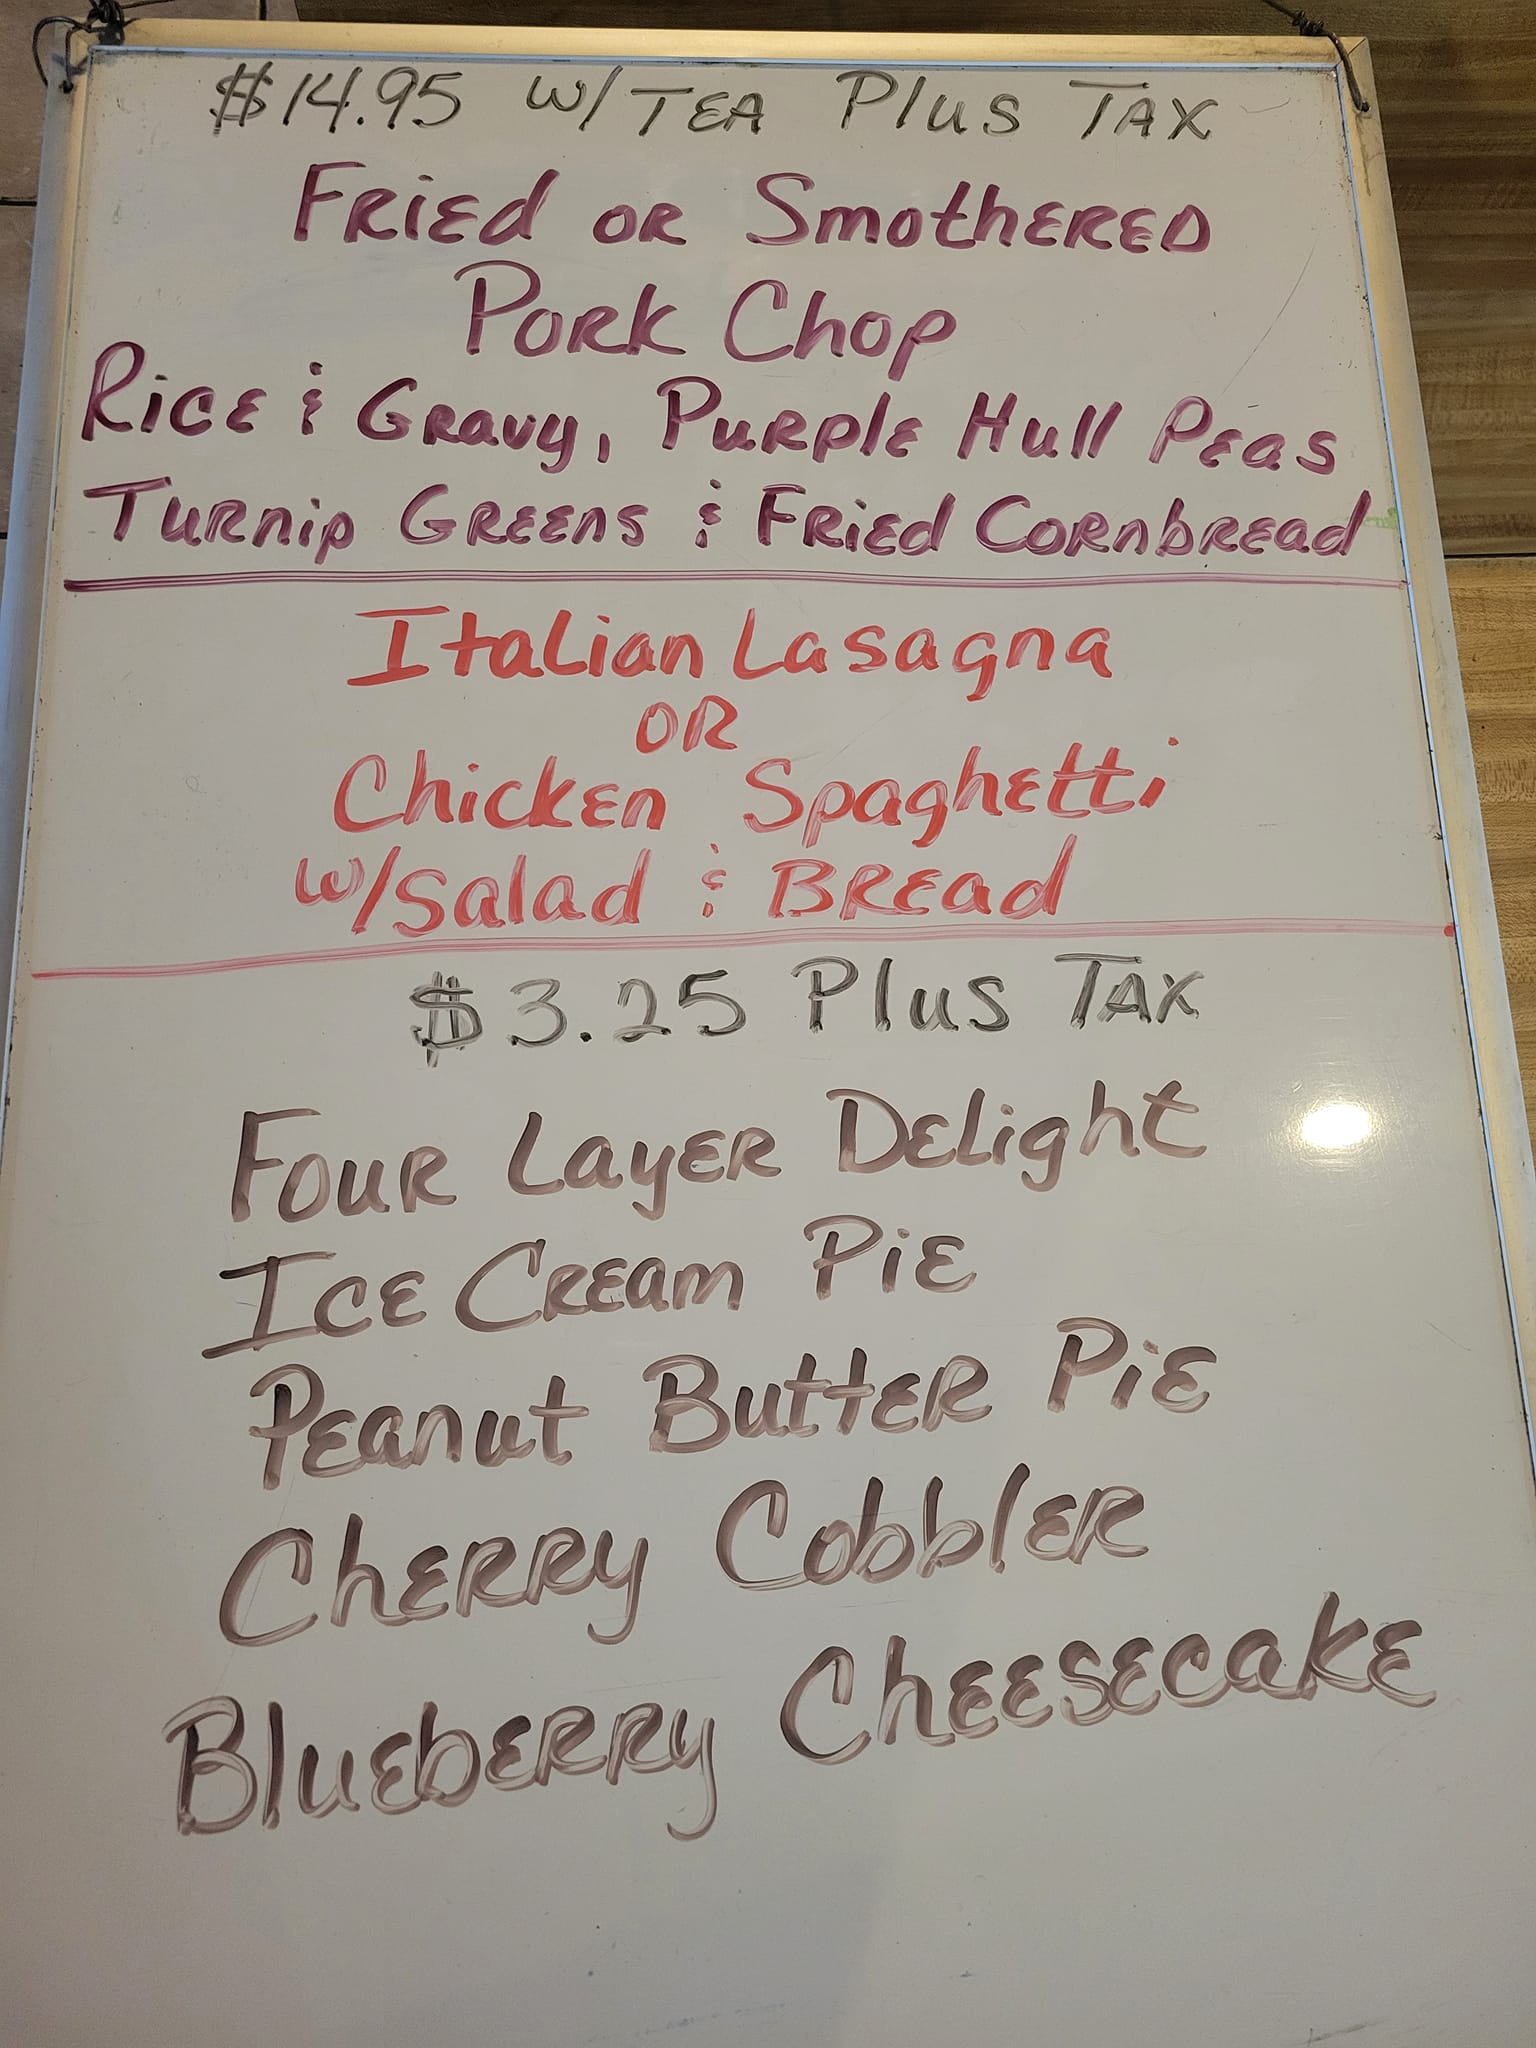 $14.95 w/ TEA Plus TAX
Fried or Smothered
Pork Chop
Rice & Gravy, Purple Hull Peas
Turnip Greens & Fried Cornbread
Italian Lasagna
OR
Chicken Spaghetti
w/Salad & Bread
$3.25 Plus TAX
Four Layer Delight
Ice Cream Pie
Peanut Butter Pie
Cherry Cobbler
Blueberry Cheesecake